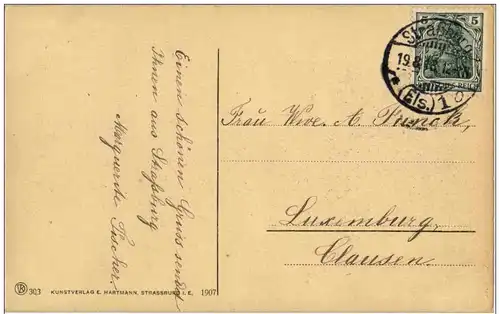 Einen schönen Gruss sendet
Ihnen aus Straßburg
Marguerite Fischer.
5
Strassburg
19.8.
(Els.) 1
REICH
Frau Wwe. A. Funck,
Luxemburg,
Clausen.
303 KUNSTVERLAG E. HARTMANN, STRASSBURG I. E. 1907